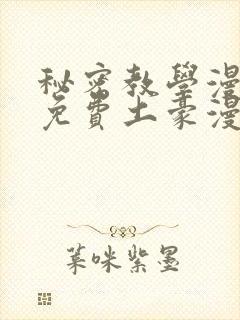 秘密教學漫
免費土豪漫
葉咪紫墨